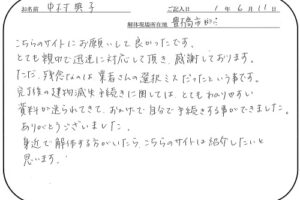 お名前 中村 典子 ご記入日 1年6月11日
解体現場所在地 豊橋市
こちらのサイトにお願いして良かったです。
とても親切で迅速に対応して頂き、感謝しております。
ただ、残念なのは業者さんの選択ミスだったという事です。
完了後の建物滅失手続きに関しては、とてもわかりやすい
資料が送られてきて、おかげで自分で手続きする事ができました。
ありがとうございました。
身近で解体する方がいたら、こちらのサイトは紹介したいと
思います。